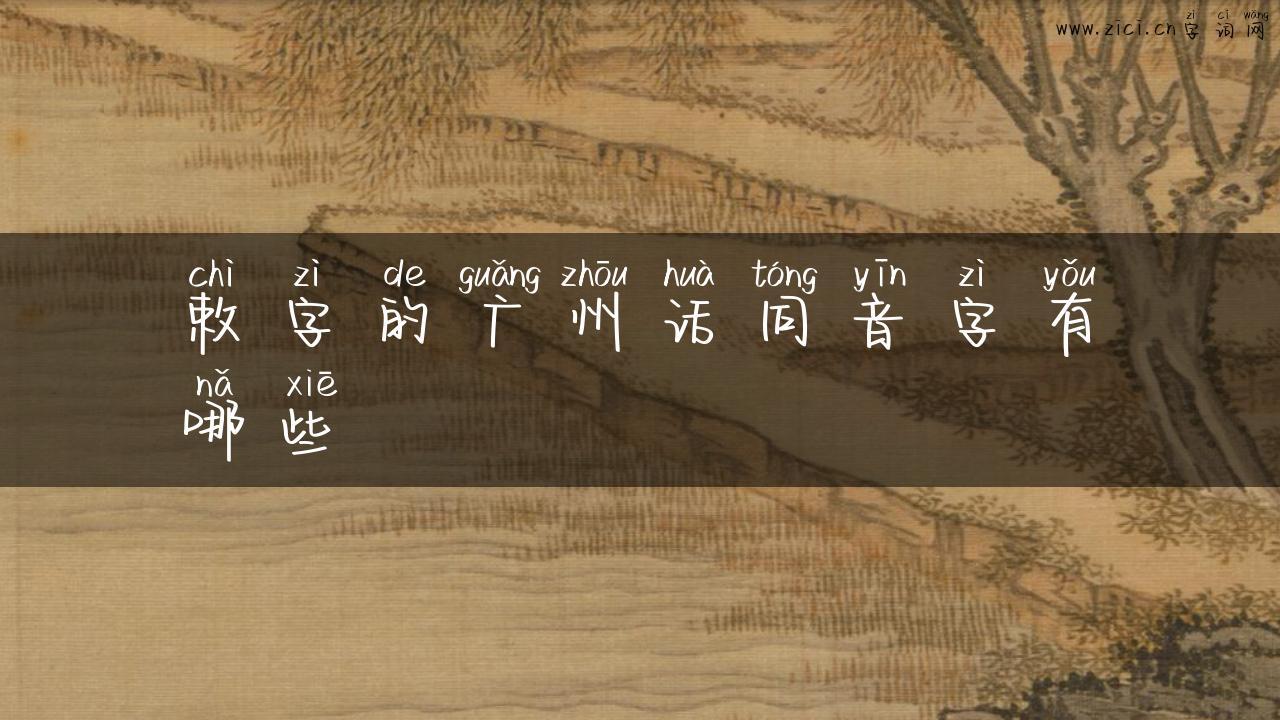 zì cí wǎng
www.zici.cn字词网
chì zì de guǎng zhōu huà tóng yīn zì yǒu
敕字的广州话同音字有
nǎ xiē
哪些